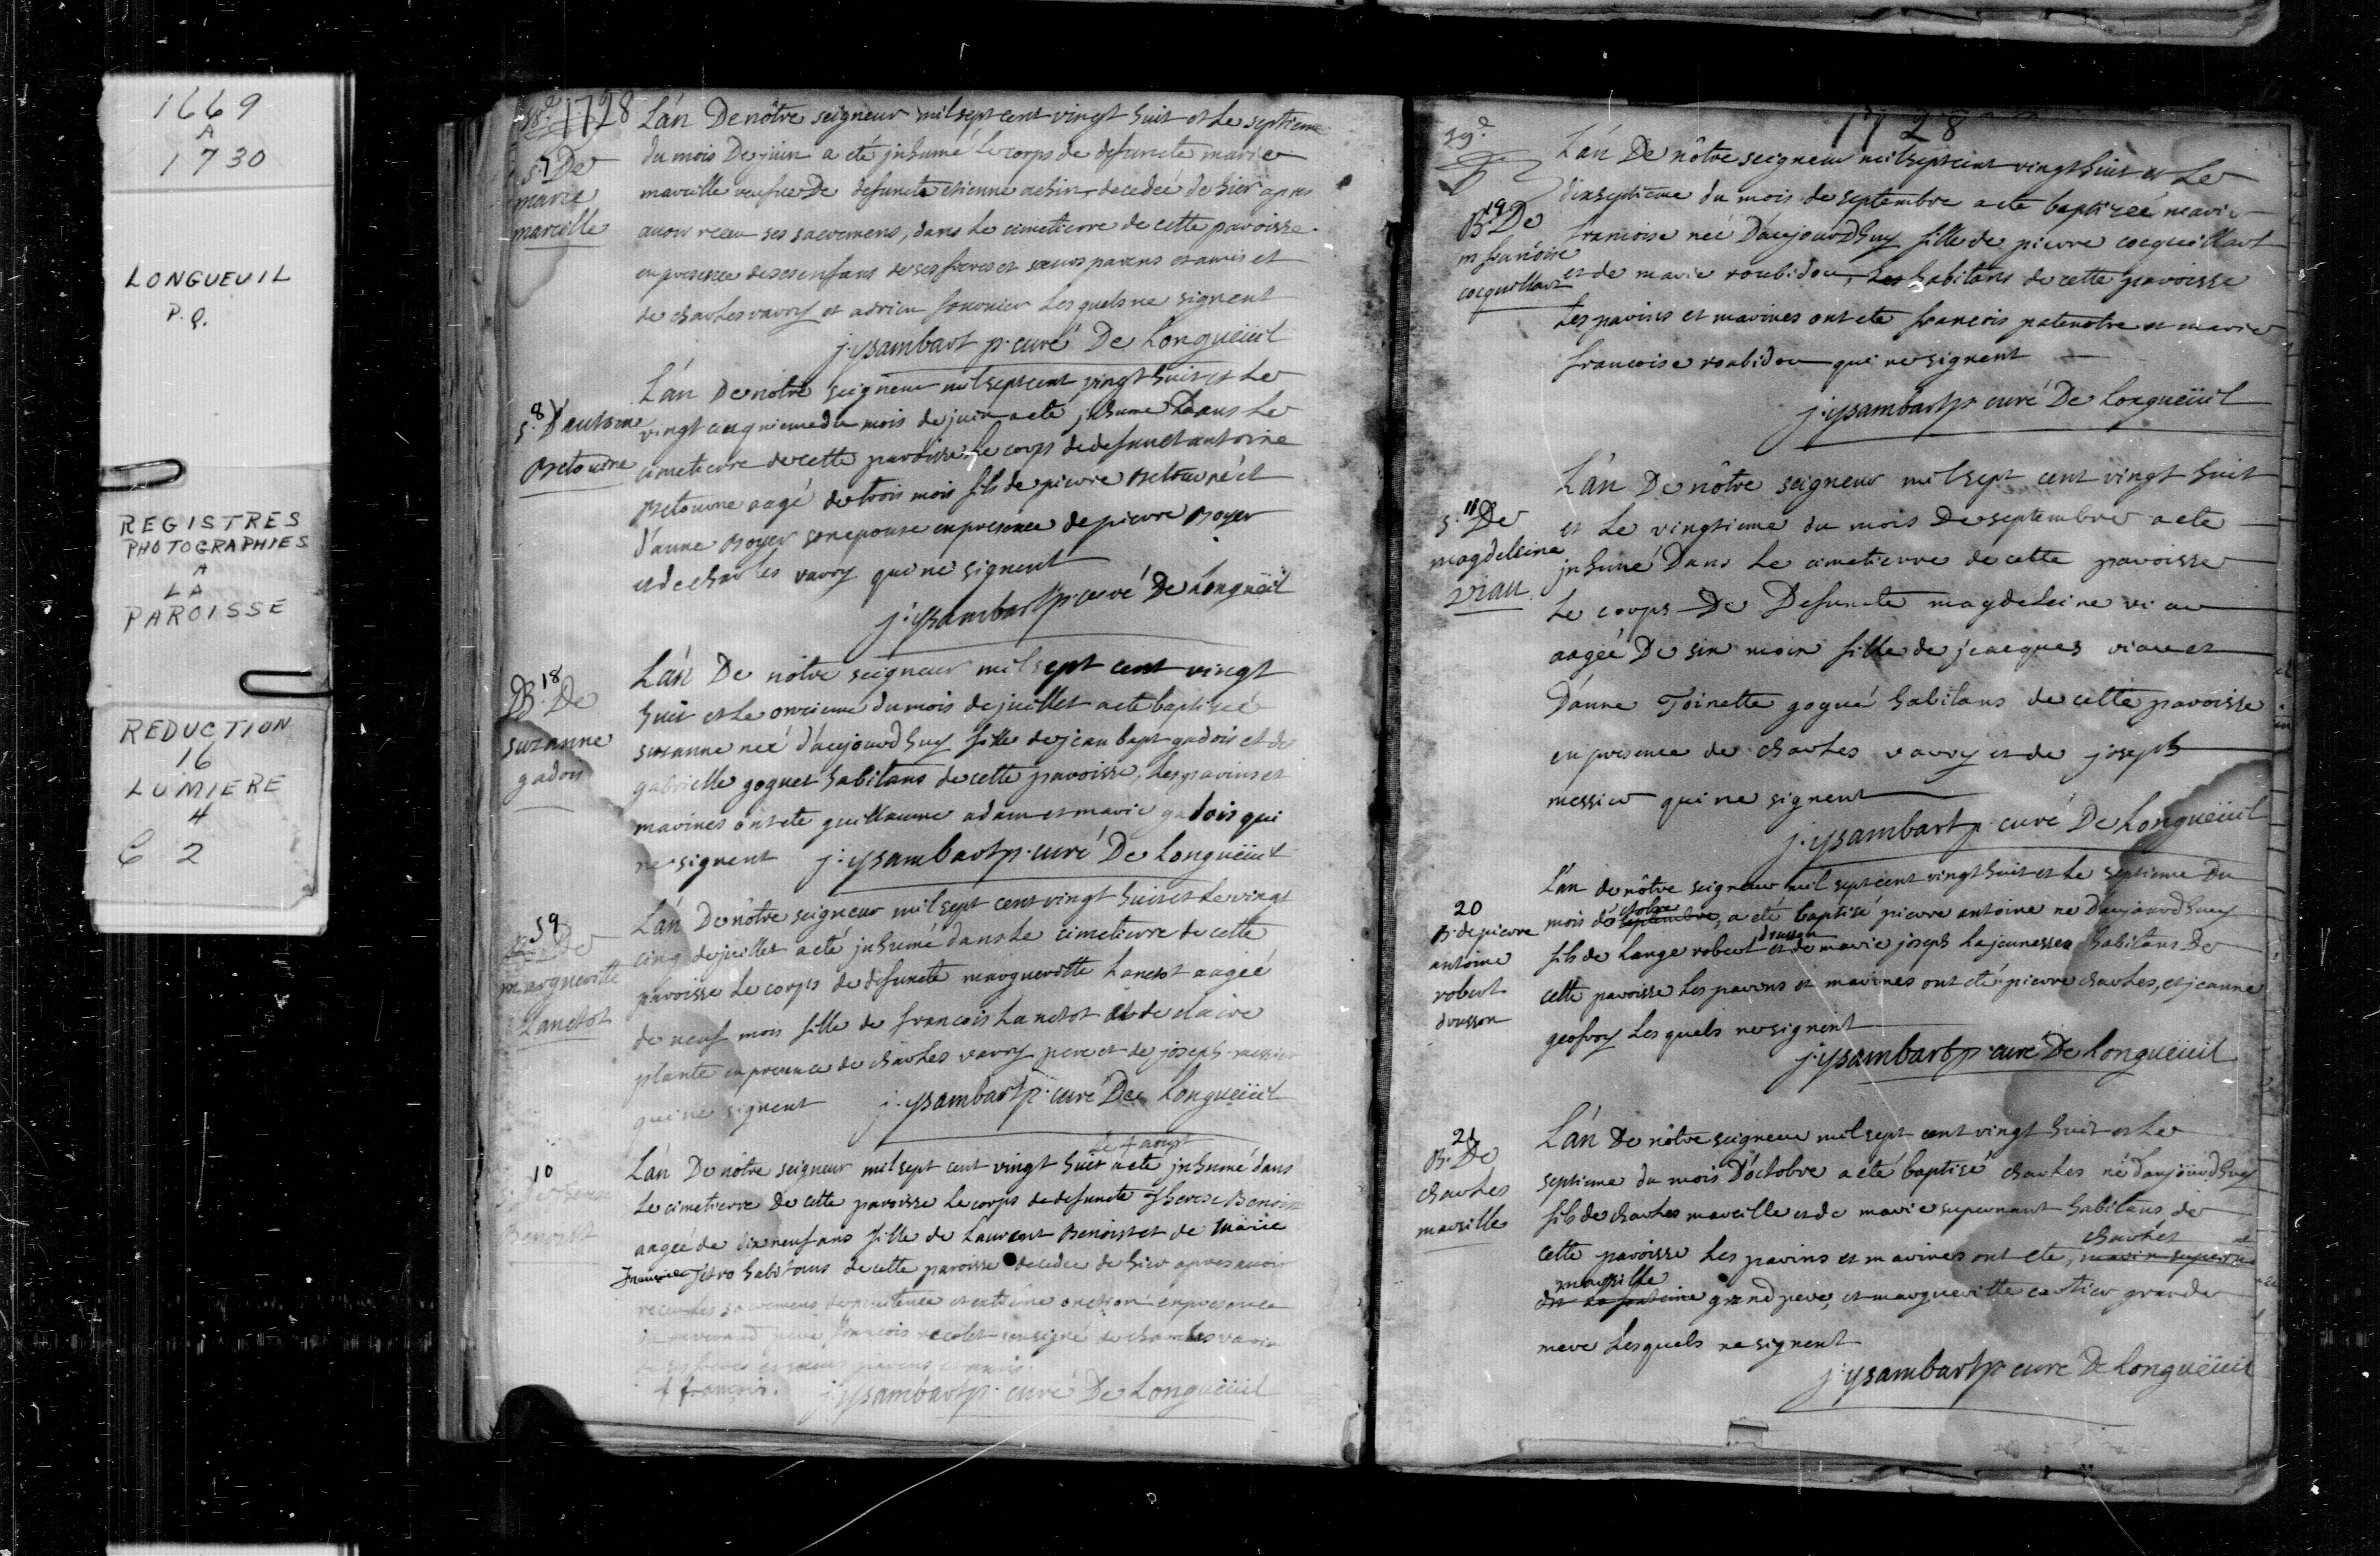 1669
A
1730
LONGUEUIL
P.Q.
REGISTRES
PHOTOGRAPHIES
A
LA
PAROISSE
REDUCTION
16
LUMIERE
4
C 2
1728
S. 7 De
marie
marcille
L'án De nôtre seigneur mil sept cent vingt huit et Le septieme
du mois De juin a eté jnhumé Le corps de defuncte marie
marcille veufve De defunct etienne achin decedeé de hier apres
avoir receu ses sacremens, dans Le cimetierre de cette paroisse
en presence de ses enfans de ses freres et sœurs parens et amis et
de charles varry et adrien Lesquels ne signent
j. ysambart p. curé De Longueüil
8
S. D'antoine
Betourné
L'án De nôtre seigneur mil sept cent vingt huit et Le
vingt cinquieme du mois de juin a eté jnhumé Dans Le
cimetierre de cette paroisse Le corps de defunct antoine
Betourné aagé de trois mois fils de pierre Betourné et
d'anne Boyer son epouse en presence de pierre Boyer
et de charles varry qui ne signent
j. ysambart p. curé De Longueüil
18
B. De
suzanne
gadois
L'án De nôtre seigneur mil sept cent vingt
huit et Le onzieme du mois de juillet a eté baptiseé
suzanne neé d'aujourd'huy fille de jean bapt gadois et de
gabrielle goguet habitans de cette paroisse, Les parins et
marines ont eté guillaume adam et marie gadois qui
ne signent j. ysambart p. curé De Longueüil
S 9
De
margueritte
Lanctot
L'án De nôtre seigneur mil sept cent vingt huit et Le vingt
cinq de juillet a eté jnhumé dans Le cimetierre de cette
paroisse Le corps de defuncte margueritte Lanctot aageé
de neuf mois fille de francois Lanctot et de claire
plante en presence de charles varry pere et de joseph messier
qui ne signent j. ysambart p. curé De Longueüil
10
S. De therese
Benoist
Le 4 aoust
L'án De nôtre seigneur mil sept cent vingt huit a eté jnhumé dans
Le cimetierre De cette paroisse Le corps de defuncte Therese Benoist
aageé de dix neuf ans fille de Laurent Benoist et de Marie
Françoise Jetro habitans de cette paroisse decedée de hier apres avoir
receu Les sacremens de penitence et extreme onction en presence
du reverend pere françois recolet soussigné de charles varrin
de ses freres et sœurs parens et amis.
f françois. j. ysambart p. curé De Longueüil
19e
1728
19
B. De
m franćoise
cocquillart
L'án De nôtre seigneur mil sept cent vingt huit et Le
dixseptieme du mois de septembre a eté baptizeé marie
francoise neé D'aujourd'huy fille de pierre cocquillart
et de marie roubidou, Les habitans de cette paroisse
Les parins et marines ont eté francois patenotre et marie
francoise roubidou qui ne signent
j. ysambart p. curé De Longueüil
11
S. De
magdeleine
viau
L'án De nôtre seigneur mil sept cent vingt huit
et Le vingtieme du mois De septembre a eté
jnhumé Dans Le cimetierre de cette paroisse
Le corps De Defuncte magdeleine viau
aageé De six mois fille de jcacques viau et
D'anne Toinette gogué habitans de cette paroisse
en presence de charles varry et de joseph
messier qui ne signent
j. ysambart p. curé De Longueüil
20
B. de pierre
antoine
robert
drusson
L'án de nôtre seigneur mil sept cent vingt huit et Le septieme Du
mois d'octobre septembre, a eté baptisé pierre antoine né D'aujourd'huy
fils de Lange robert drusson et de marie joseph Lajeunesse habitans De
cette paroisse Les parens et marines ont eté pierre charles, et jeanne
geofroy Lesquels ne signent
j. ysambart p. curé De Longueüil
21
B. De
charles
marsille
L'án De nôtre seigneur mil sept cent vingt huit et Le
septieme du mois D'octobre a eté baptisé charles né D'aujourd'huy
fils de charles marcille et de marie supernant habitans de
cette paroisse Les parins et marines ont eté, charles
marsille grand pere, et margueritte cartier grande
mere Lesquels ne signent
j. ysambart p. curé De Longueüil